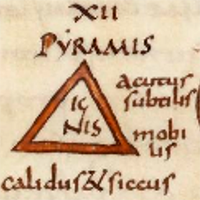 XII
PYRAMIS
IG
NIS
acutus
subtilis
mobi
lis
calidus & siccus